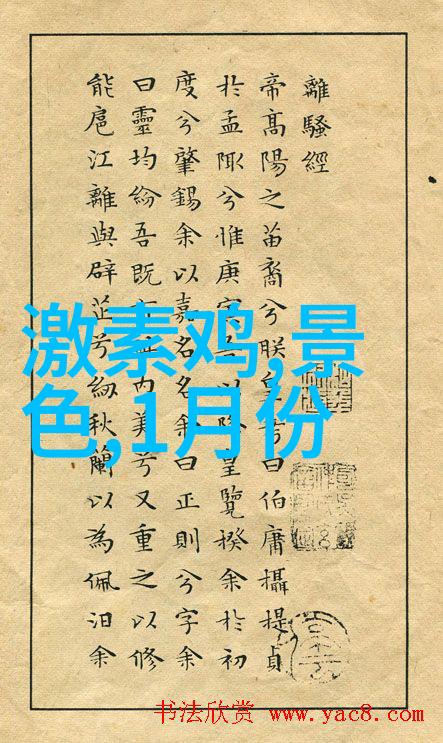 離騷經
帝高陽之苗裔兮朕皇曰伯庸攝提貞
於孟陬兮惟庚寅以降皇覽揆余於初
度兮肇錫余以嘉名名余曰正則兮字余
曰靈均紛吾既內美兮又重之以修
能扈江離與辟芷兮紉秋蘭以為佩汨余
激素鸡,景
色,1月份
书法欣赏 www.yac8.com